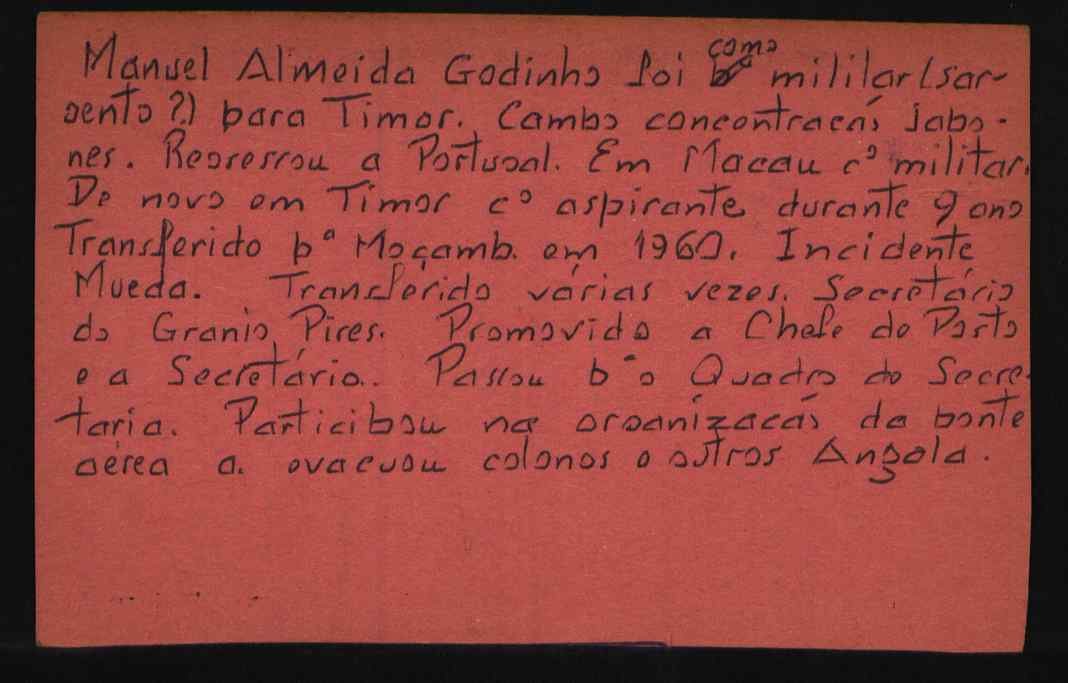 Manuel Almeida Godinho foi como militar (sar-
gento ?) para Timor. Campo concentração japo-
nês. Regressou a Portugal. Em Macau cº militar.
De novo em Timor cº aspirante durante 9 ano
Transferido pª Moçamb. em 1960. Incidente
Mueda. Transferido várias vezes. Secretário
do Granjo Pires. Promovido a Chefe de Posto
e a Secretário. Passou pª o Quadro de Secre-
taria. Participou na organização da ponte
aérea q. evacuou colonos e outros Angola.